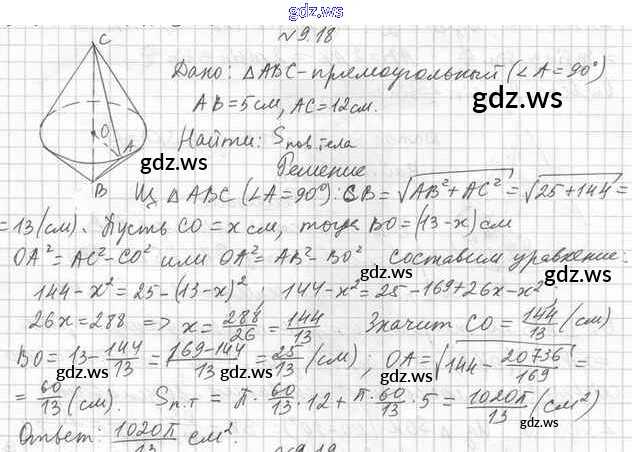 gdz.ws
C
O
A
B
№9.18
Дано: △ABC-прямоугольный (∠A=90°)
AB=5см, AC=12см.
gdz.ws
Найти: Sпов.тела
gdz.ws
Решение
Из △ABC (∠A=90°): CB=√AB²+AC²=√25+144=
=13(см). Пусть CO=x см, тогда BO=(13-x)см
gdz.ws
OA²=AC²-CO² или OA²=AB²-BO² Составим уравнение:
gdz.ws gdz.ws
144-x²=25-(13-x)²; 144-x²=25-169+26x-x²
26x=288 => x=288/26=144/13. Значит CO=144/13(см)
gdz.ws
BO=13-144/13=(169-144)/13=25/13(см); OA=√144-20736/169=
gdz.ws gdz.ws
=60/13(см). Sп.т=π·60/13·12+π·60/13·5=1020π/13(см²)
gdz.ws
Ответ: 1020π/13 см².
gdz.ws
№9.19